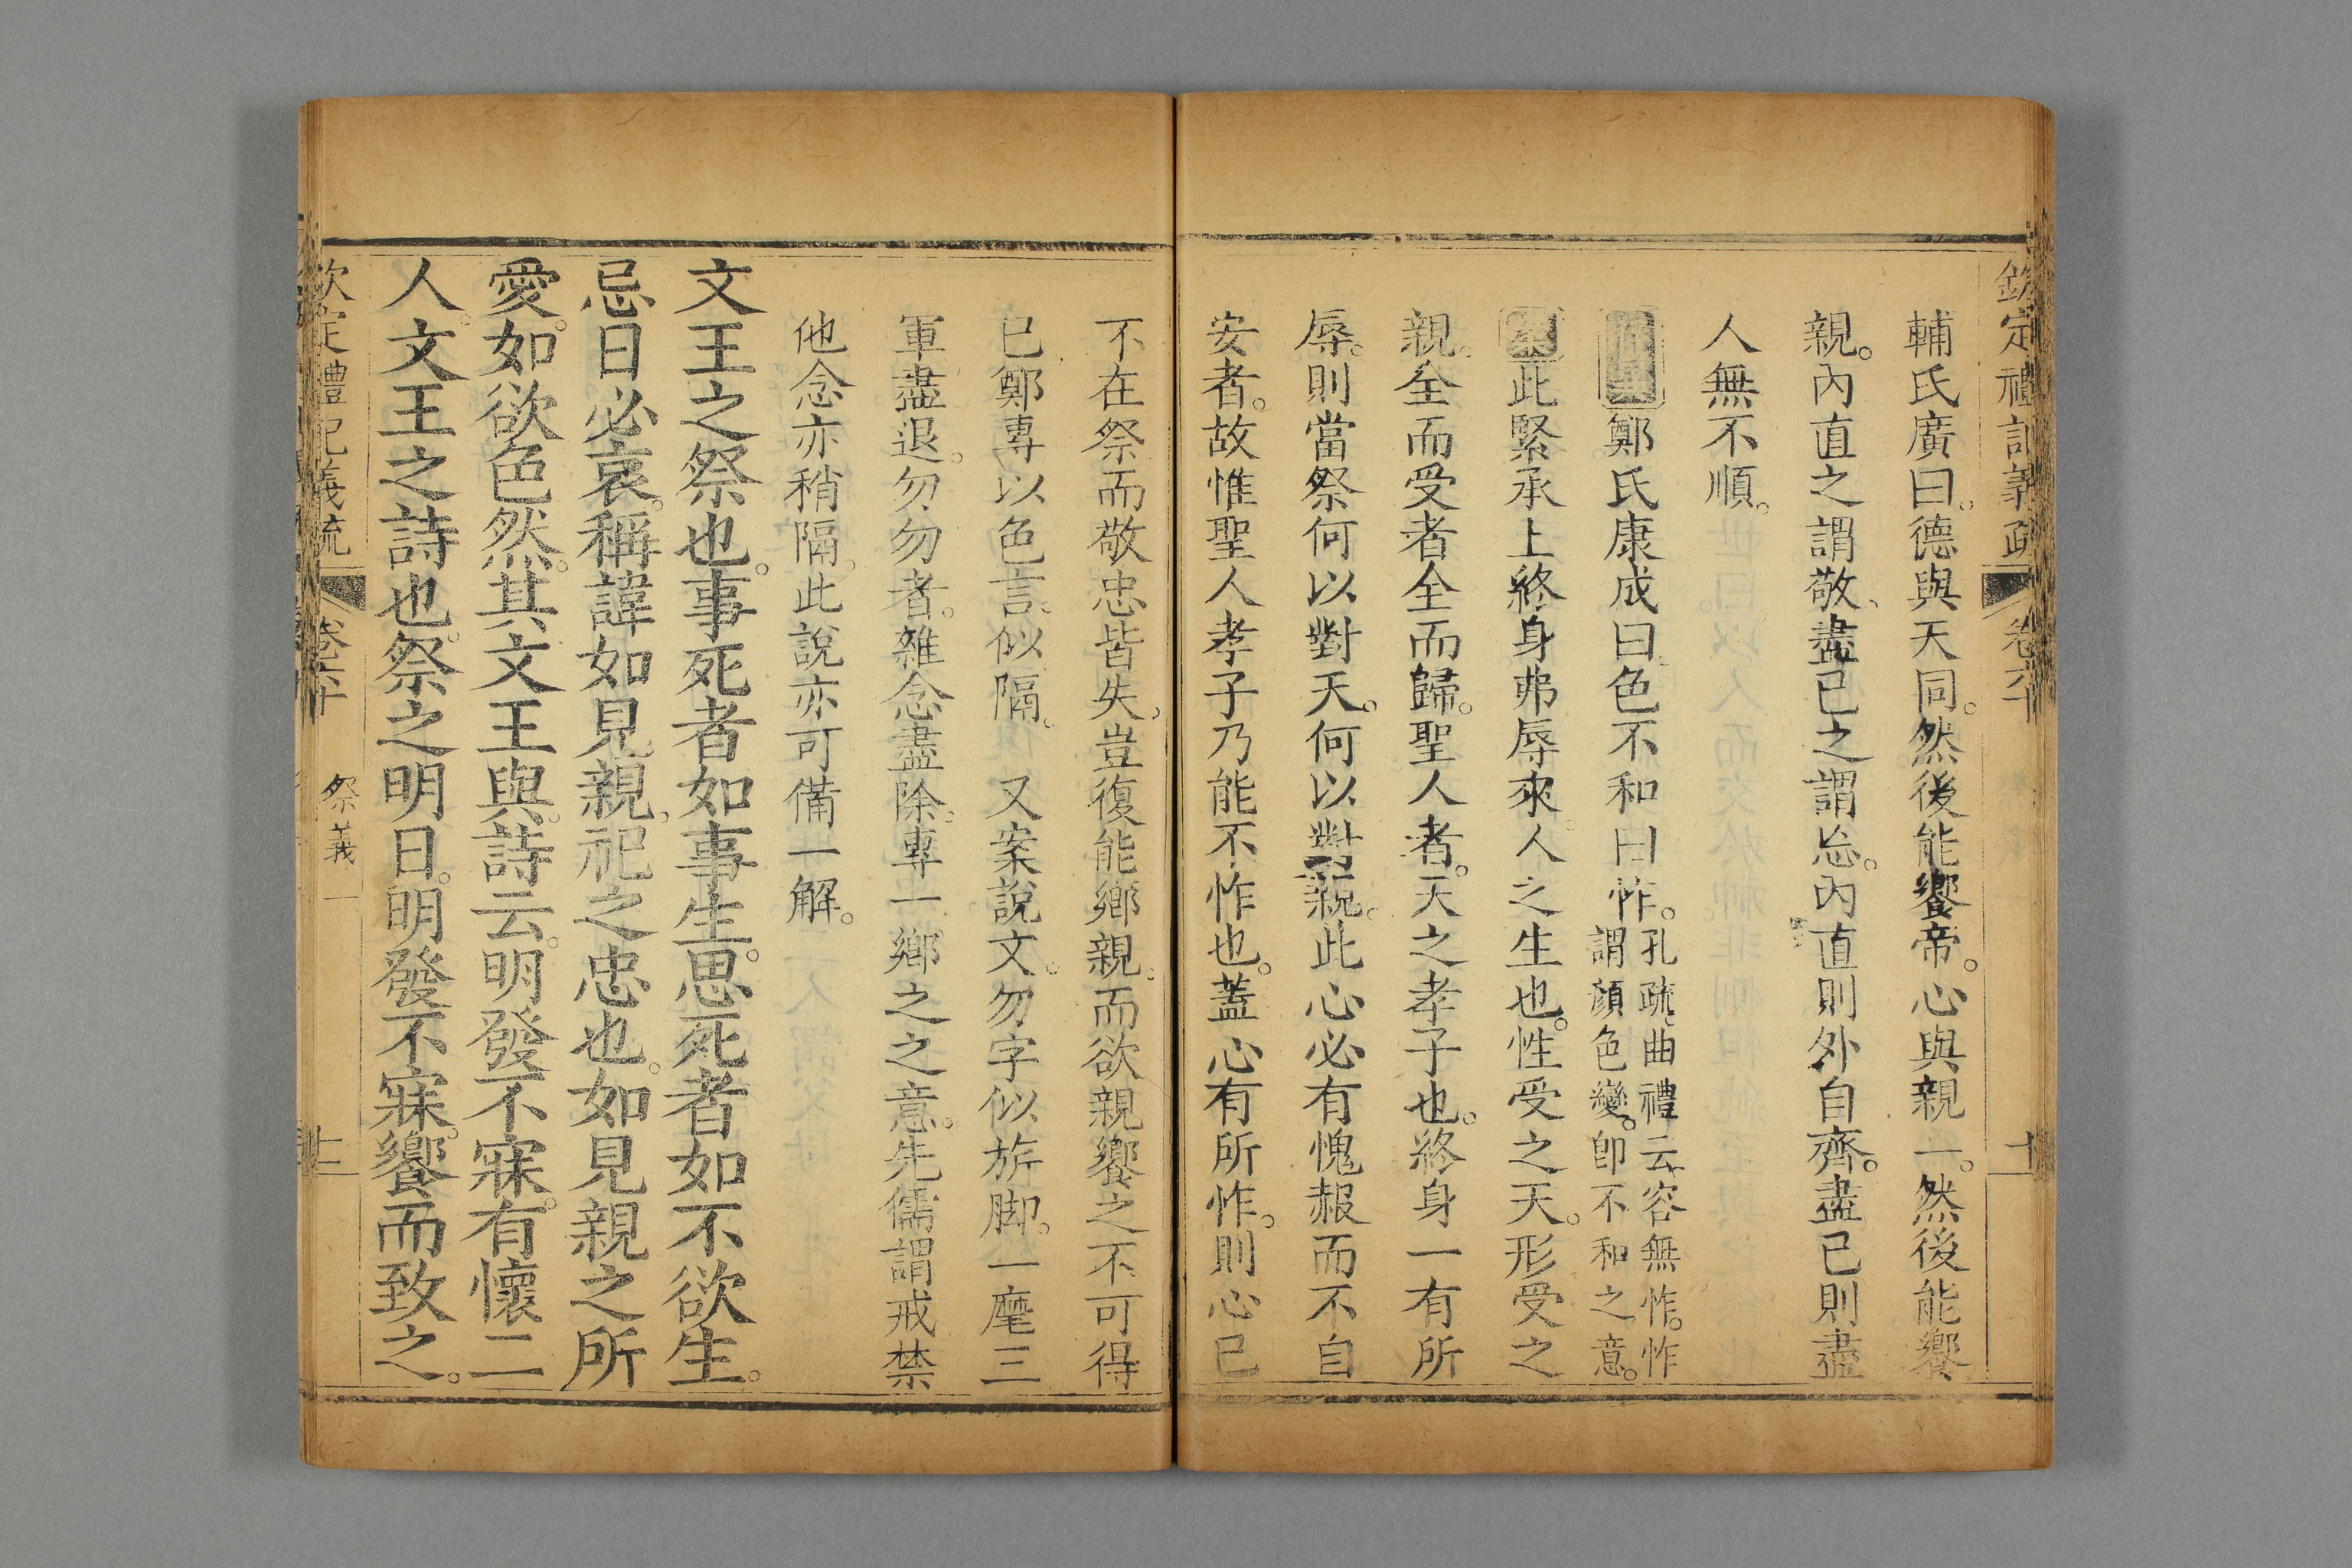 欽定禮記義疏 卷六十 十
輔氏廣曰。德與天同。然後能饗帝。心與親一。然後能饗
親。內直之謂敬、盡已之謂忠。內直則外自齊。盡已則盡
人無不順。
鄭氏康成曰色不和曰怍。孔疏、曲禮云、容無怍。怍
謂顏色變。卽不和之意。
案此緊承上終身弗辱來。人之生也。性受之天。形受之
親。全而受者全而歸。聖人者。天之孝子也。終身一有所
辱。則當祭何以對天。何以對親。此心必有愧赧而不自
安者。故惟聖人孝子乃能不怍也。蓋心有所怍。則心已
不在祭而敬忠皆失、豈復能鄉親。而欲親饗之不可得
已鄭專以色言。似隔。 又案說文。勿字似旂脚。一麾三
軍盡退。勿勿者。雜念盡除。專一鄉之之意。先儒謂戒禁
他念亦稍隔。此說亦可備一解。
文王之祭也。事死者如事生。思死者如不欲生。
忌日必哀。稱諱如見親、祀之忠也。如見親之所
愛。如欲色然。其文王與。詩云。明發不寐。有懷二
人。文王之詩也。祭之明日。明發不寐。饗而致之。
欽定禮記義疏 卷六十 祭義一 十一